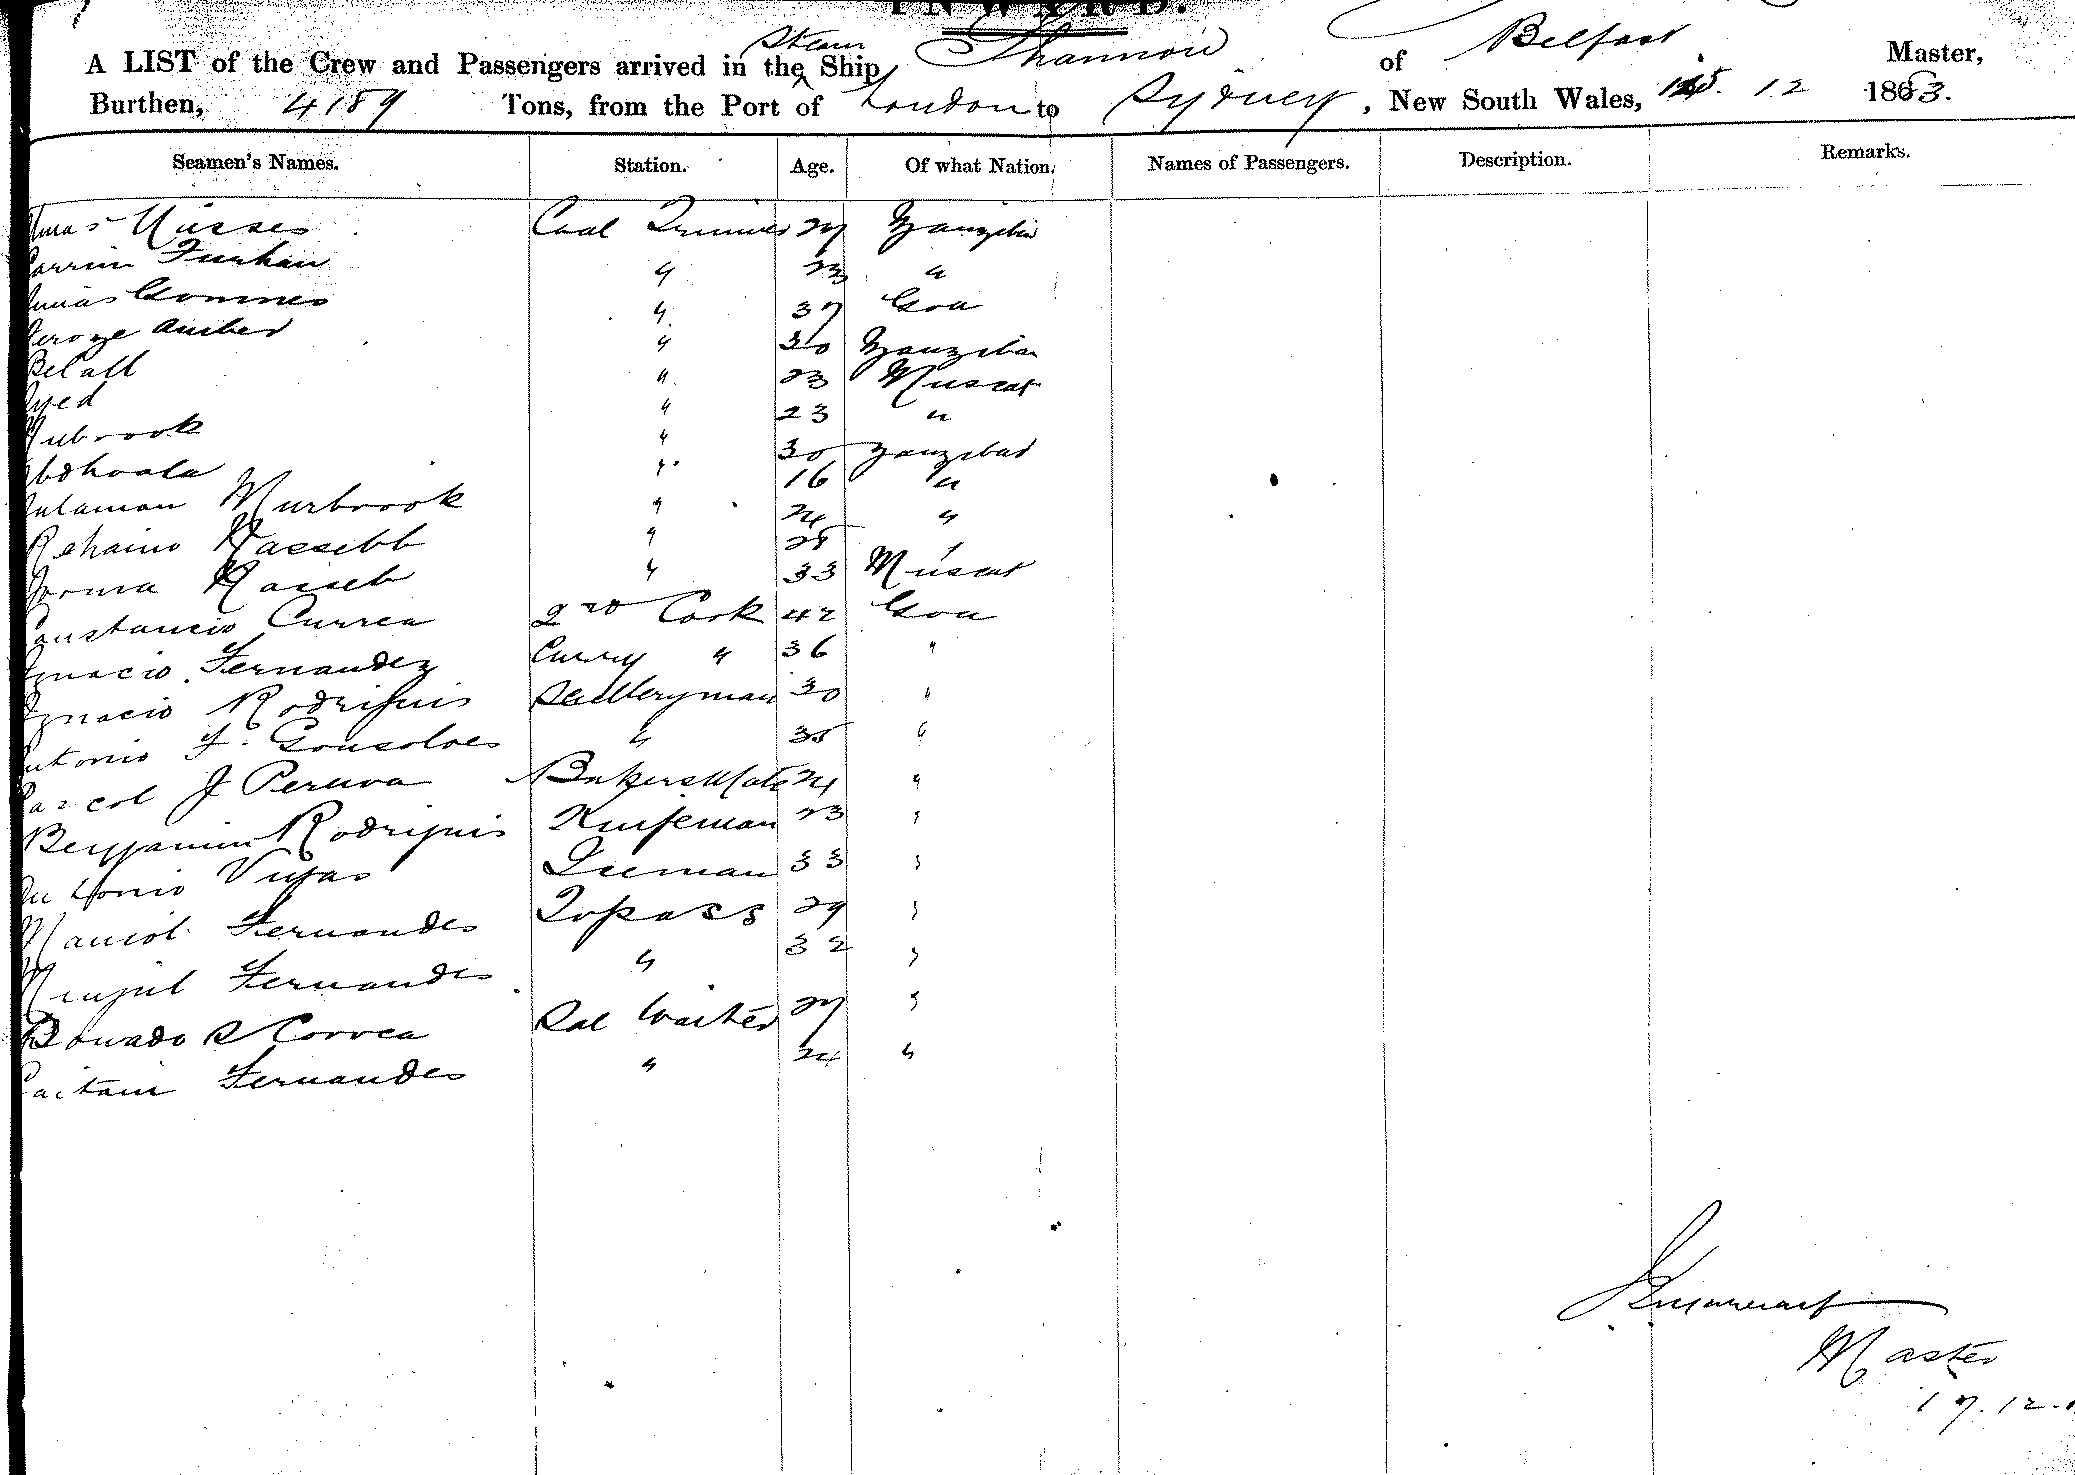 INWARD.
A LIST of the Crew and Passengers arrived in the Steam Ship Shannon of Belfast Master,
Burthen, 4189 Tons, from the Port of London to Sydney, New South Wales, 15. 12 1883.
Seamen's Names. Station. Age. Of what Nation. Names of Passengers. Description. Remarks.
Coal Trimmer 27 Zanzibar
Furhan " 23 "
Gommes " 37 Goa
Feroze Amber " 30 Zanzibar
Belall " 23 Muscat
Syed " 23 "
Mubrook " 30 Zanzibar
Abdhoola " 16 "
Sulaman Murbrook " 24 "
Rehaino Nassibb " 28 "
Jorma Nassib " 33 Muscat
Constancio Currea 2nd Cook 42 Goa
Ignacio Fernandez Curry " 36 "
Ignacio Rodriguis Sculleryman 30 "
Antonio F. Gonsolves " 35 "
Pascol J Peruva Bakers Mate 24 "
Benjamin Rodriguis Knifeman 23 "
Antonio Viegas Iceman 33 "
Maniol Fernandes Topass 29 "
Minguel Fernandes " 32 "
Donado S Correa Sal Waiter 27 "
Caitain Fernandes " 24 "
Master
17.12.